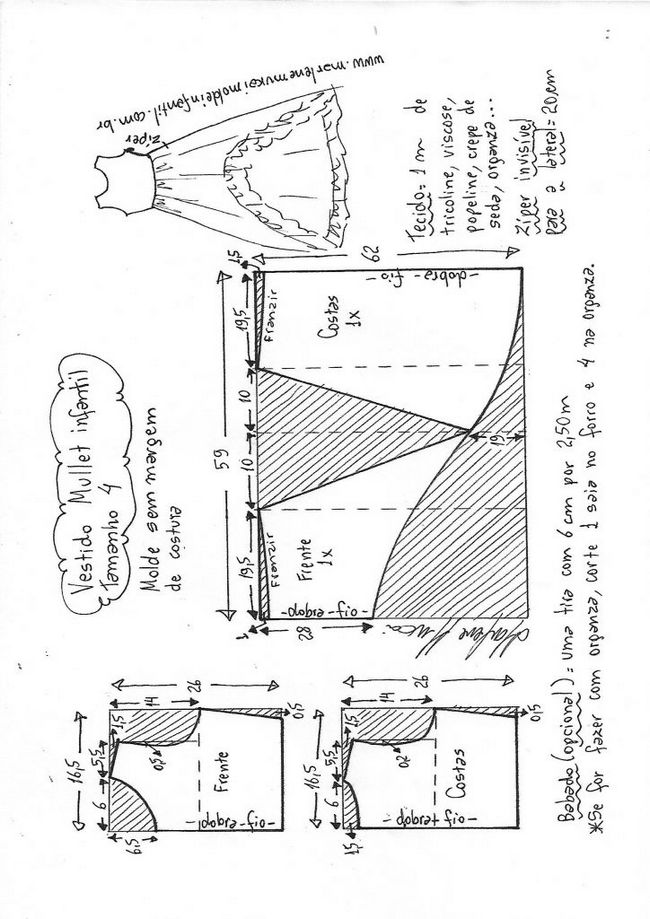 Vestido Mullet infantil
Tamanho 4
Molde sem margem
de costura
www.marlenemukaimoldeinfantil.com.br
zíper
Tecido = 1 m de
tricoline, viscose,
popeline, crepe de
seda, organza...
Zíper invisível
para a lateral = 20cm
59
19,5
10
10
19,5
1
1,5
Franzir
Franzir
Frente
1x
Costas
1x
28
62
19
-dobra-fio-
-dobra-fio-
Marlene Mukai
16,5
6
5,5
1,5
6,5
14
26
0,5
0,5
Frente
-dobra-fio-
16,5
6
5,5
1,5
1,5
14
26
0,2
0,5
Costas
-dobra-fio-
Babado (opcional) = uma tira com 6 cm por 2,50m
*Se for fazer com organza, corte 1 saia no forro e 4 na organza.